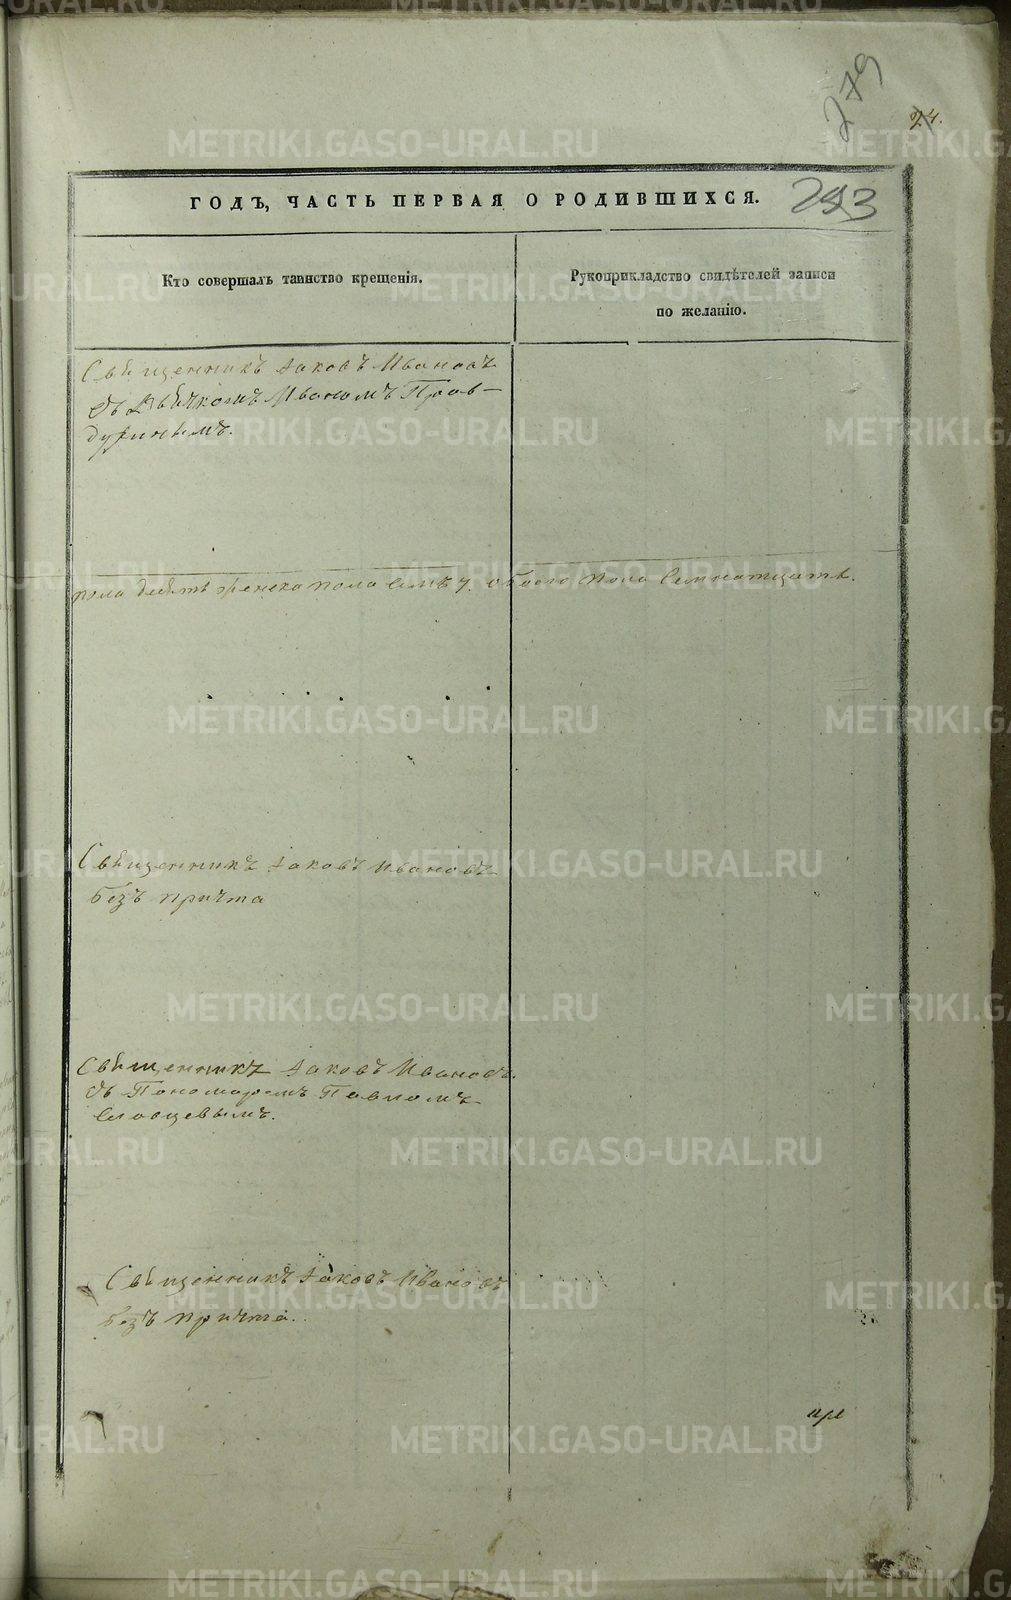 279
24.
ГОДЪ, ЧАСТЬ ПЕРВАЯ О РОДИВШИХСЯ. 293
Кто совершалъ таинство крещенія.
Рукоприкладство свидѣтелей записи
по желанію.
Священникъ Іаковъ Ивановъ
съ Дьячкомъ Иваномъ Прав-
дуринымъ.
пола девять женска пола семь 7. обоего пола семнатцать.
Священникъ Іаковъ Ивановъ
безъ причта
Священникъ Іаковъ Ивановъ.
съ Пономаремъ Павломъ
Словцевымъ.
Священникъ Іаковъ Ивановъ
безъ причта.
METRIKI.GASO-URAL.RU